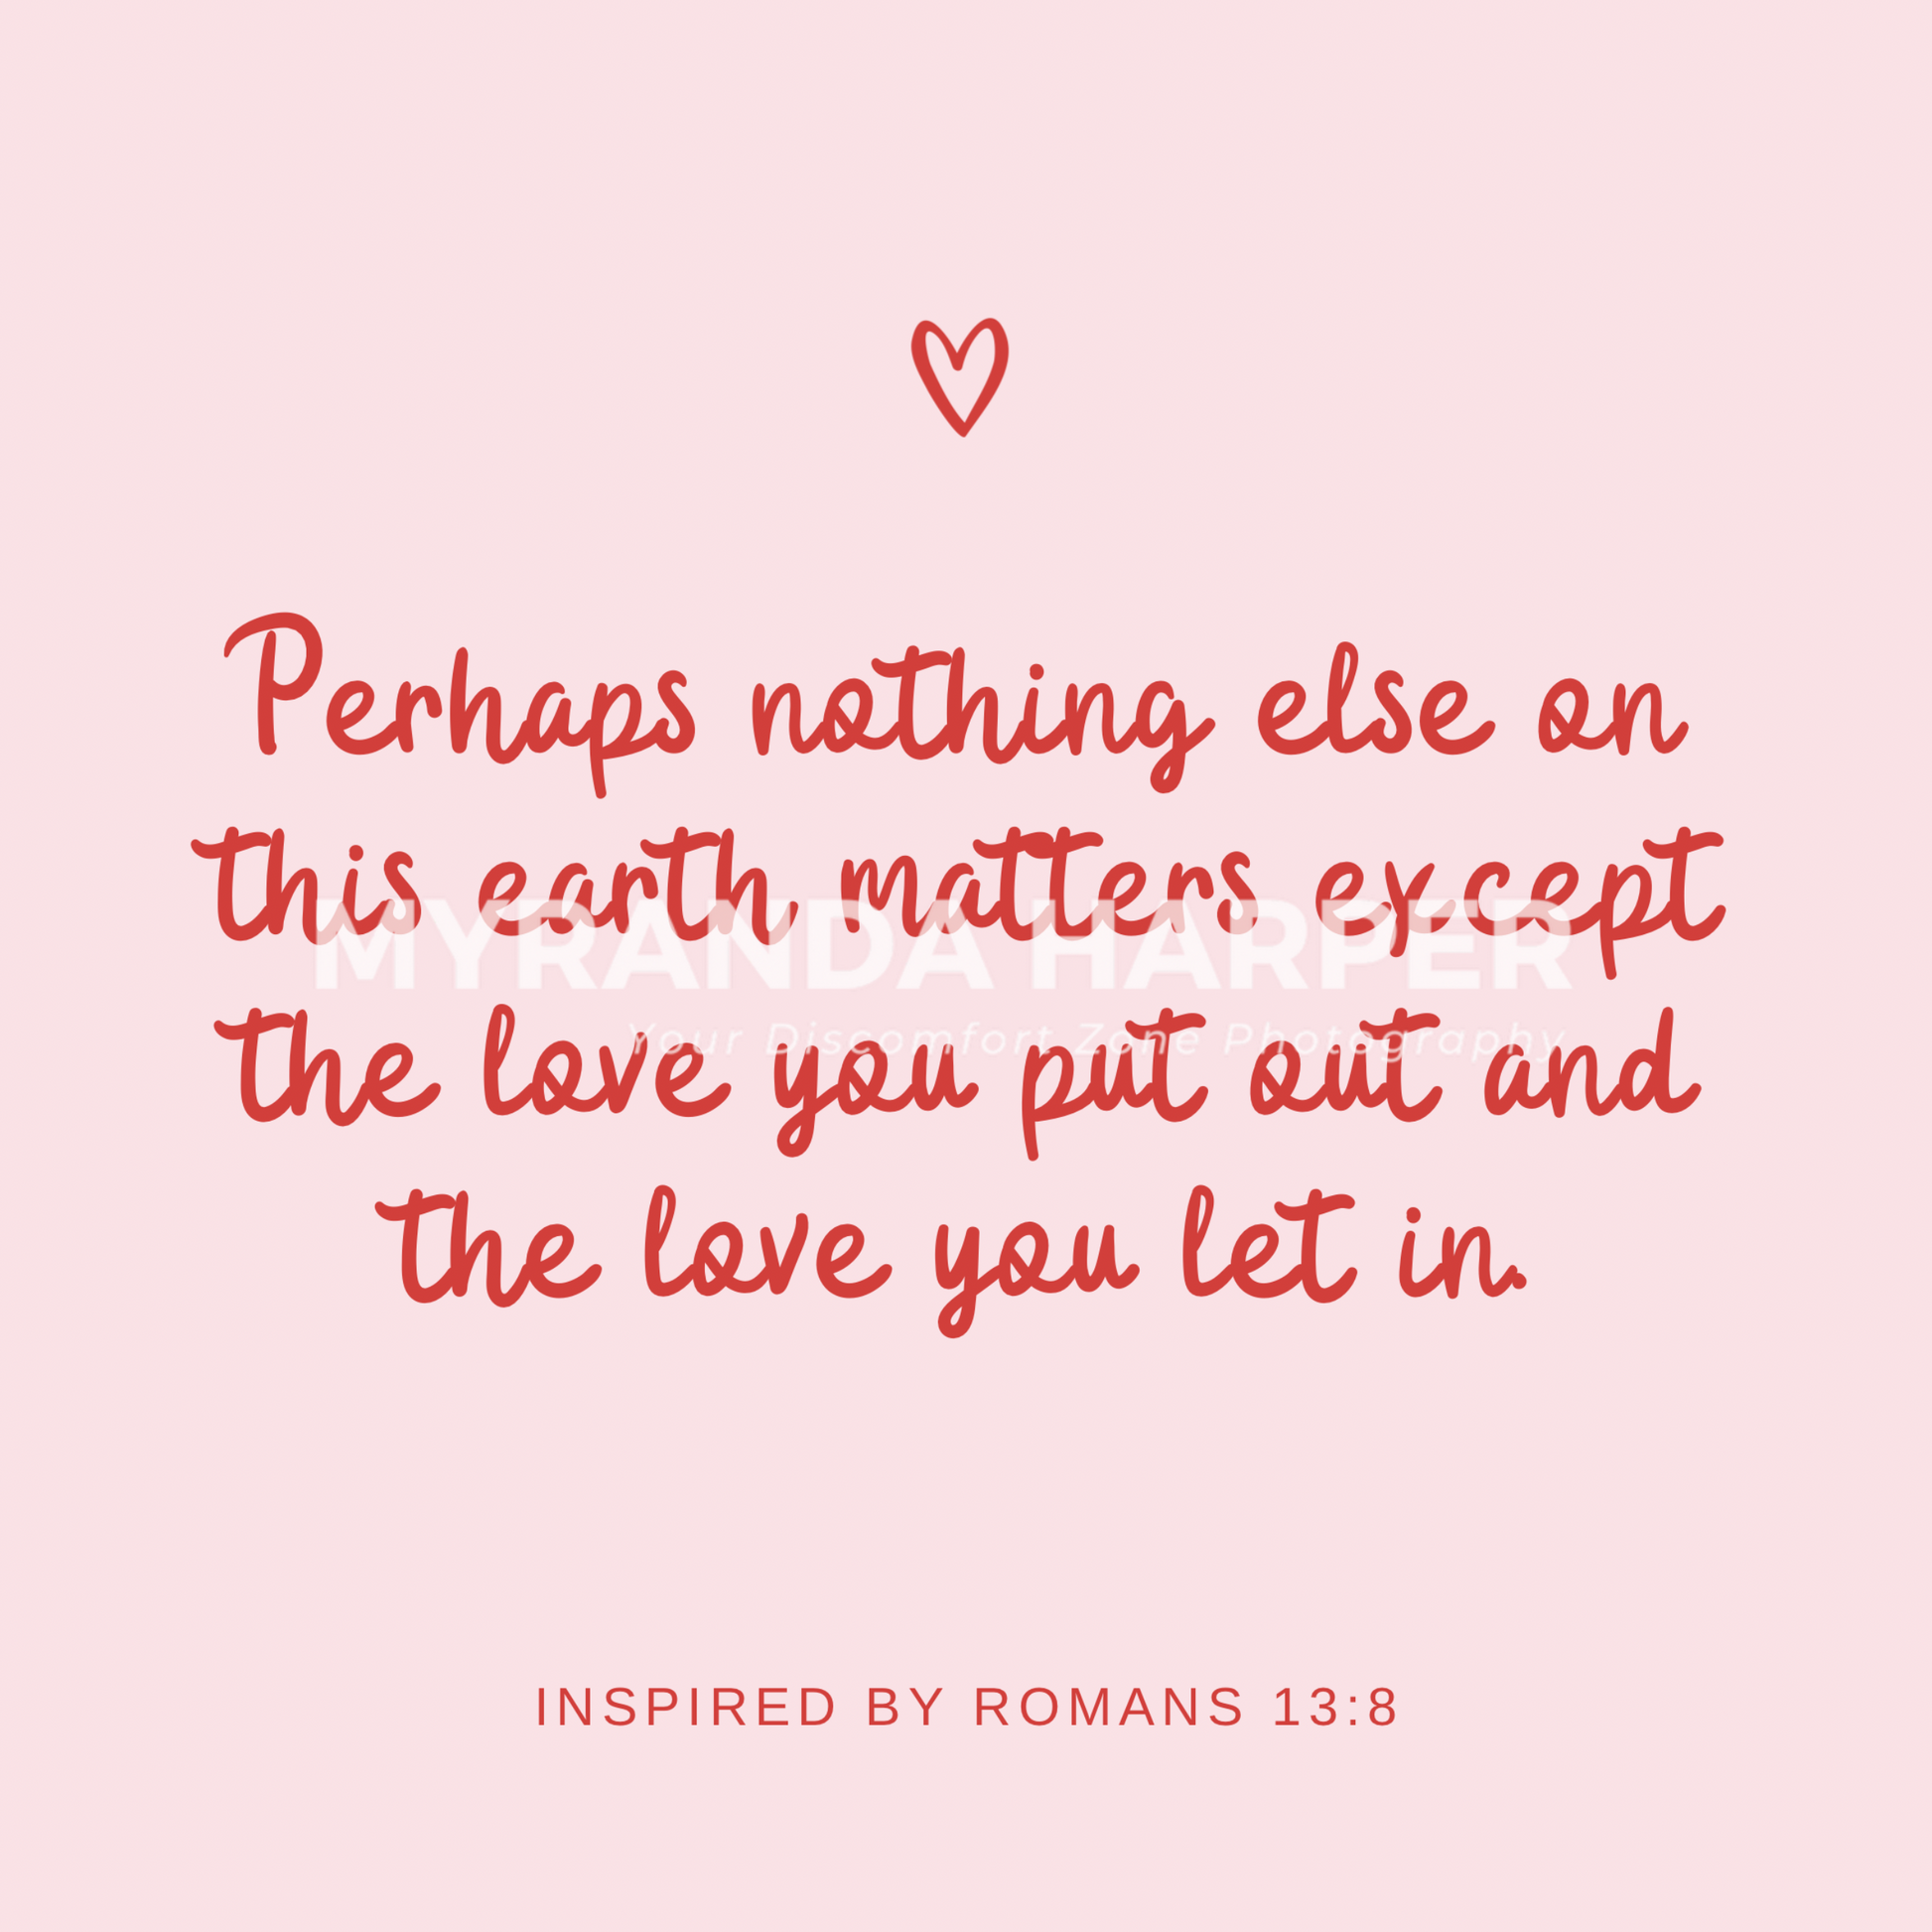 Perhaps nothing else on
this earth matters except
MYRANDA HARPER
the love you put out and
Your Discomfort Zone Photography
the love you let in.
INSPIRED BY ROMANS 13:8